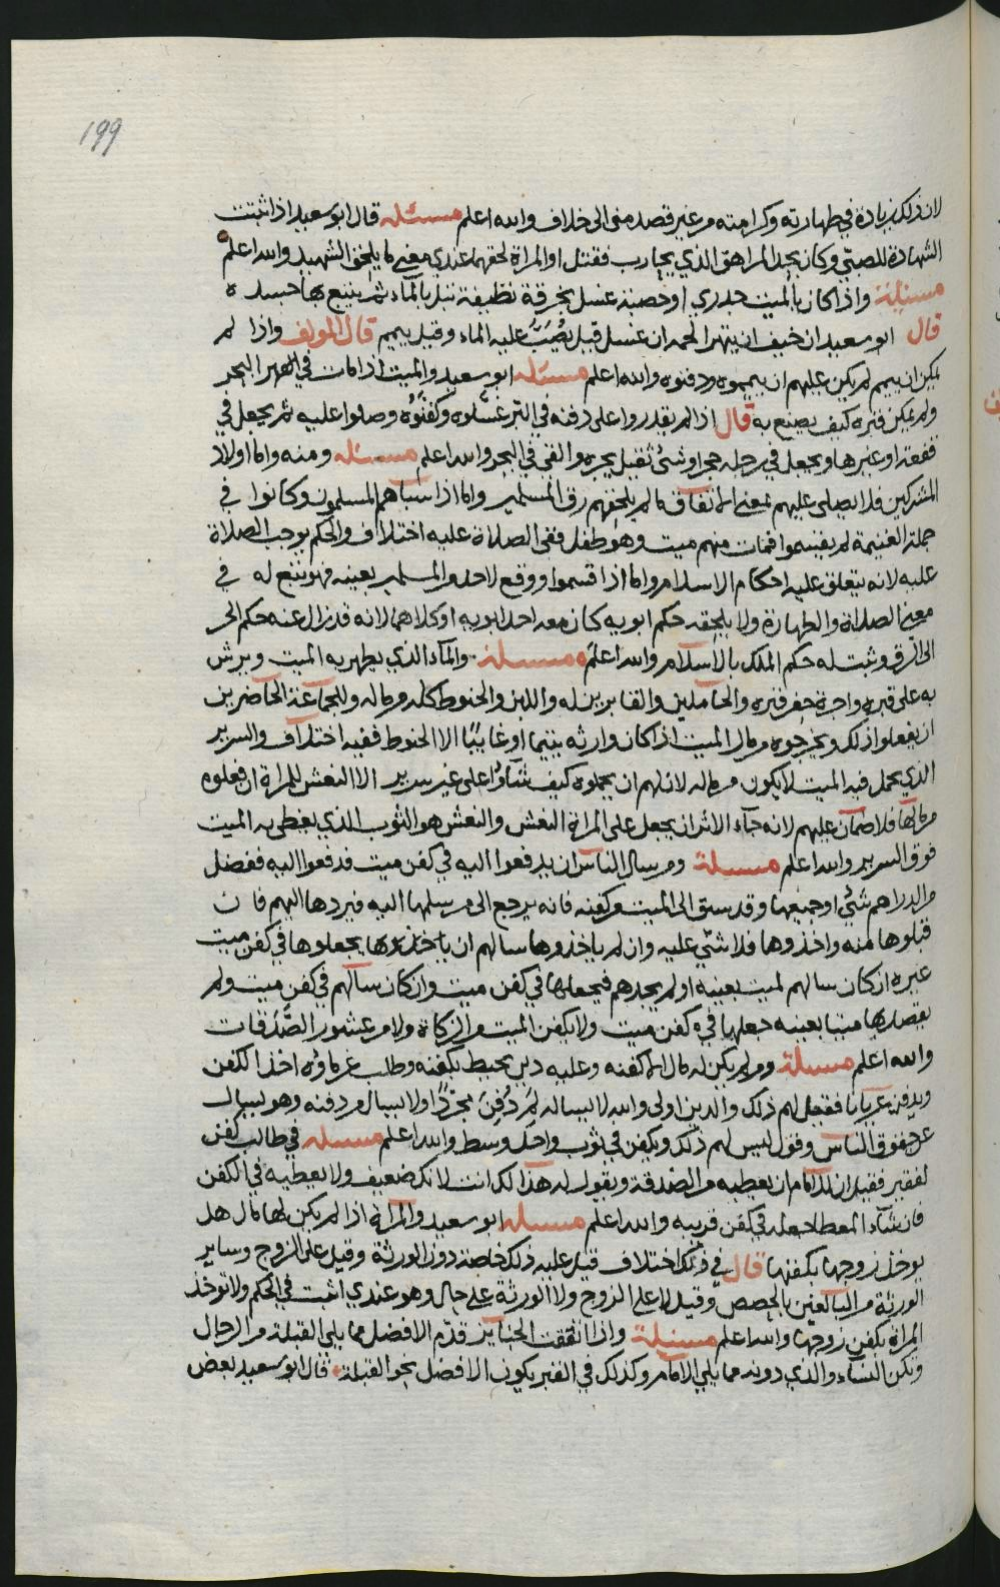 199
لان ذلك زيادة في طهارته وكرامته من غير قصد منى الى خلاف والله اعلم مسئله قال ابو سعيد اذا ثبتت
الشهادة للصبي وكان يجد المراهق الذي يحارب فقتل او المراة لحقهما عندي معنى ما يلحق الشهيد والله اعلم
مسئلة واذا كان بالميت جدري او حصبة غسل بخرقة نظيفة تبل بالمآء ثم يتبع بها جسده
قال ابو سعيد ان خيف ان يتهرا لحمه ان غسل قيل يُصَبُّ عليه الماء وقيل ييمم قال المولف واذا لم
يمكن ان ييمم لم يكن عليهم ان ييمموه ودفنوه والله اعلم مسئله ابو سعيد والميت اذا مات في البحر
ولم يمكن قبره كيف يصنع به قال اذا لم يقدروا على دفنه في البر غسلوه وكفنوه وصلوا عليه ثم يجعل في
قفعة او غيرها ويجعل في رجله حجر او شئ ثقيل يجره والقي في البحر والله اعلم مسئله ومنه واما اولاد
المشركين فلا يصلى عليهم بمعنى الاتفاق ما لم يلحقهم رق المسلمين واما اذا سباهم المسلمون وكانوا في
جملة الغنيمة لم يقسموا فمات منهم ميت وهو طفل ففي الصلاة عليه اختلاف والحكم يوجب الصلاة
عليه لانه يتعلق عليه احكام الاسلام واما اذا قسموا ووقع لاحد من المسلمين بعينه فهو تبع له في
معنى الصلاة والطهارة ولا يلحقه حكم ابويه كان معه احد ابويه او كلاهما لانه قد زال عنه حكم الحر
الى الرق وثبت له حكم الملك بالاسلام والله اعلم مسسلة والمآء الذي يطهر به الميت ويرش
به على قبره واجرة حفر قبره والحاملين والقابرين له واللبن والحنوط كله من ماله وللجماعة الحاضرين
ان يفعلوا ذلك ويخرجوه من مال الميت اذا كان وارثه يتيما او غايبًا الا الحنوط ففيه اختلاف والسرير
الذي يحمل فيه الميت لا يكون من ماله لانهم ان يحملوه كيف شآؤا على غير سرير الا النعش للمراة ان فعلوه
من مالها فلا ضمان عليهم لانه جآء الاثر ان يجعل على المراة النعش والنعش هو الثوب الذي يغطى به الميت
فوق السرير والله اعلم مسسلة ومن سال الناس ان يدفعوا اليه في كفن ميت فدفعوا اليه ففضل
من الدراهم شئ او جميعها وقد سبق الى الميت من كفنه فانه يرجع الى من سلمها اليه فيردها اليهم فان
قبلوها منه واخذوها فلا شئ عليه وان لم ياخذوها سالهم ان ياخذوها يجعلوها في كفن ميت
غيره ان كان سالهم لميت بعينه او لم يجدهم فيجعلها في كفن ميت وان كان سالهم في كفن ميت ولم
يقصد بها ميتا بعينه جعلها في كفن ميت ولا يكفن الميت من الزكاة ولا من عشور الصدقات
والله اعلم مسسلة ومن لم يكن له مال الا كفنه وعليه دين يحيط بكفنه وطلب غرماؤه اخذ الكفن
ويدفن عريانا فقيل لهم ذلك والدين اولى والله لا يساله لم دُفِنَ مجردًا ولا يسال من دفنه وهو يسال
عن حقوق الناس وقول ليس لهم ذلك ويكفن في ثوب واحد وسط والله اعلم مسسله في طالب كفن
لفقير فقيل ان للامام ان يعطيه من الصدقة ويقول له هذا لك انت لانك ضعيف ولا يعطيه في الكفن
فان شآء المعطا جعله في كفن قريبه والله اعلم مسسله ابو سعيد والمراة اذا لم يكن لها مال هل
يوخذ زوجها بكفنها قال في ذلك اختلاف قيل عليه ذلك خاصة دون الورثة وقيل على الزوج وساير
الورثة من البالغين بالحصص وقيل لا على الزوج ولا الورثة على حال وهو عندي اثبت في الحكم ولا توخذ
المراة بكفن زوجها والله اعلم مسئلة واذا اتفقت الجنايز قدم الافضل مما يلي القبلة من الرجال
وتكن النسآء والذي دونه مما يلي الامام وكذلك في القبر يكون الافضل نحو القبلة قال ابو سعيد بعض